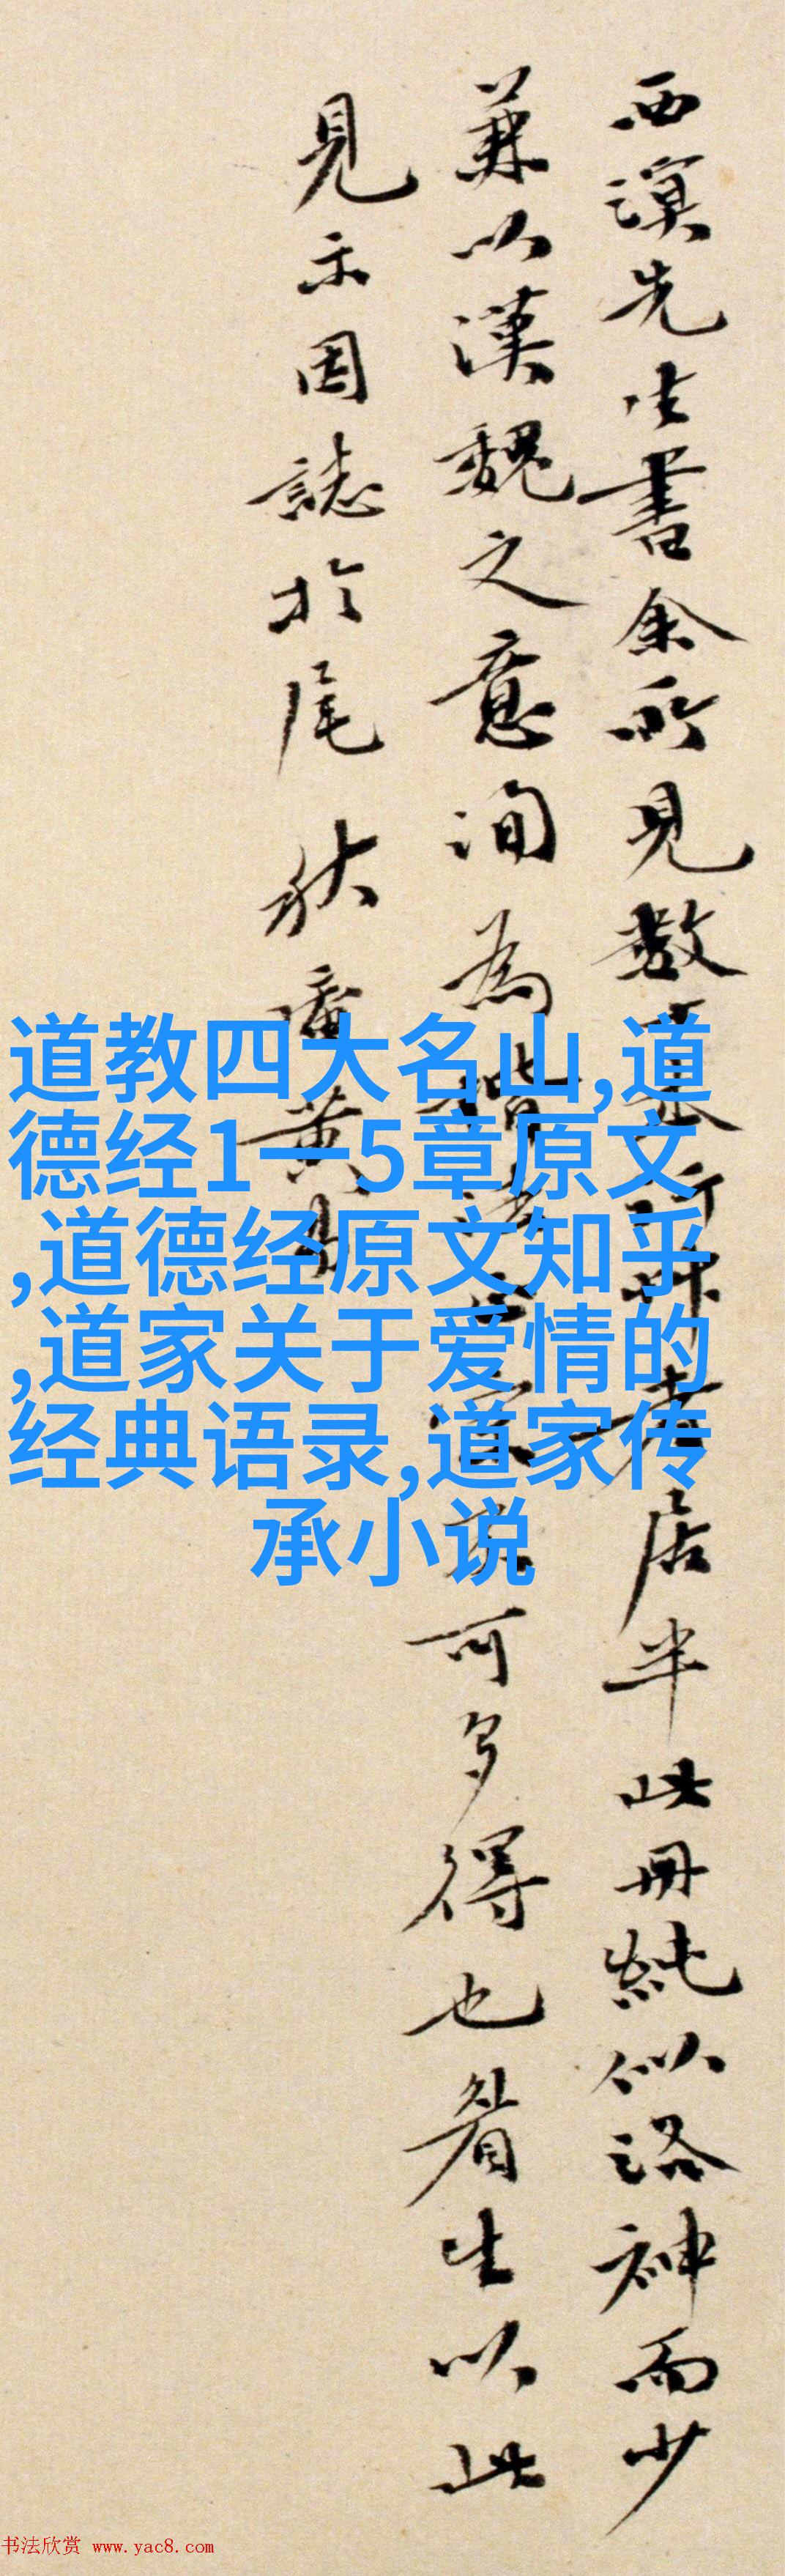 西溟先生書余所見數
居半此冊純似洛神而少
兼以漢魏之意洵為楷
可多得也眉生以此
見示因誌於尾
道教四大名山,道
德经1一5章原文
,道德经原文知乎
,道家关于爱情的
经典语录,道家传
承小说
书法欣赏 www.yac8.com